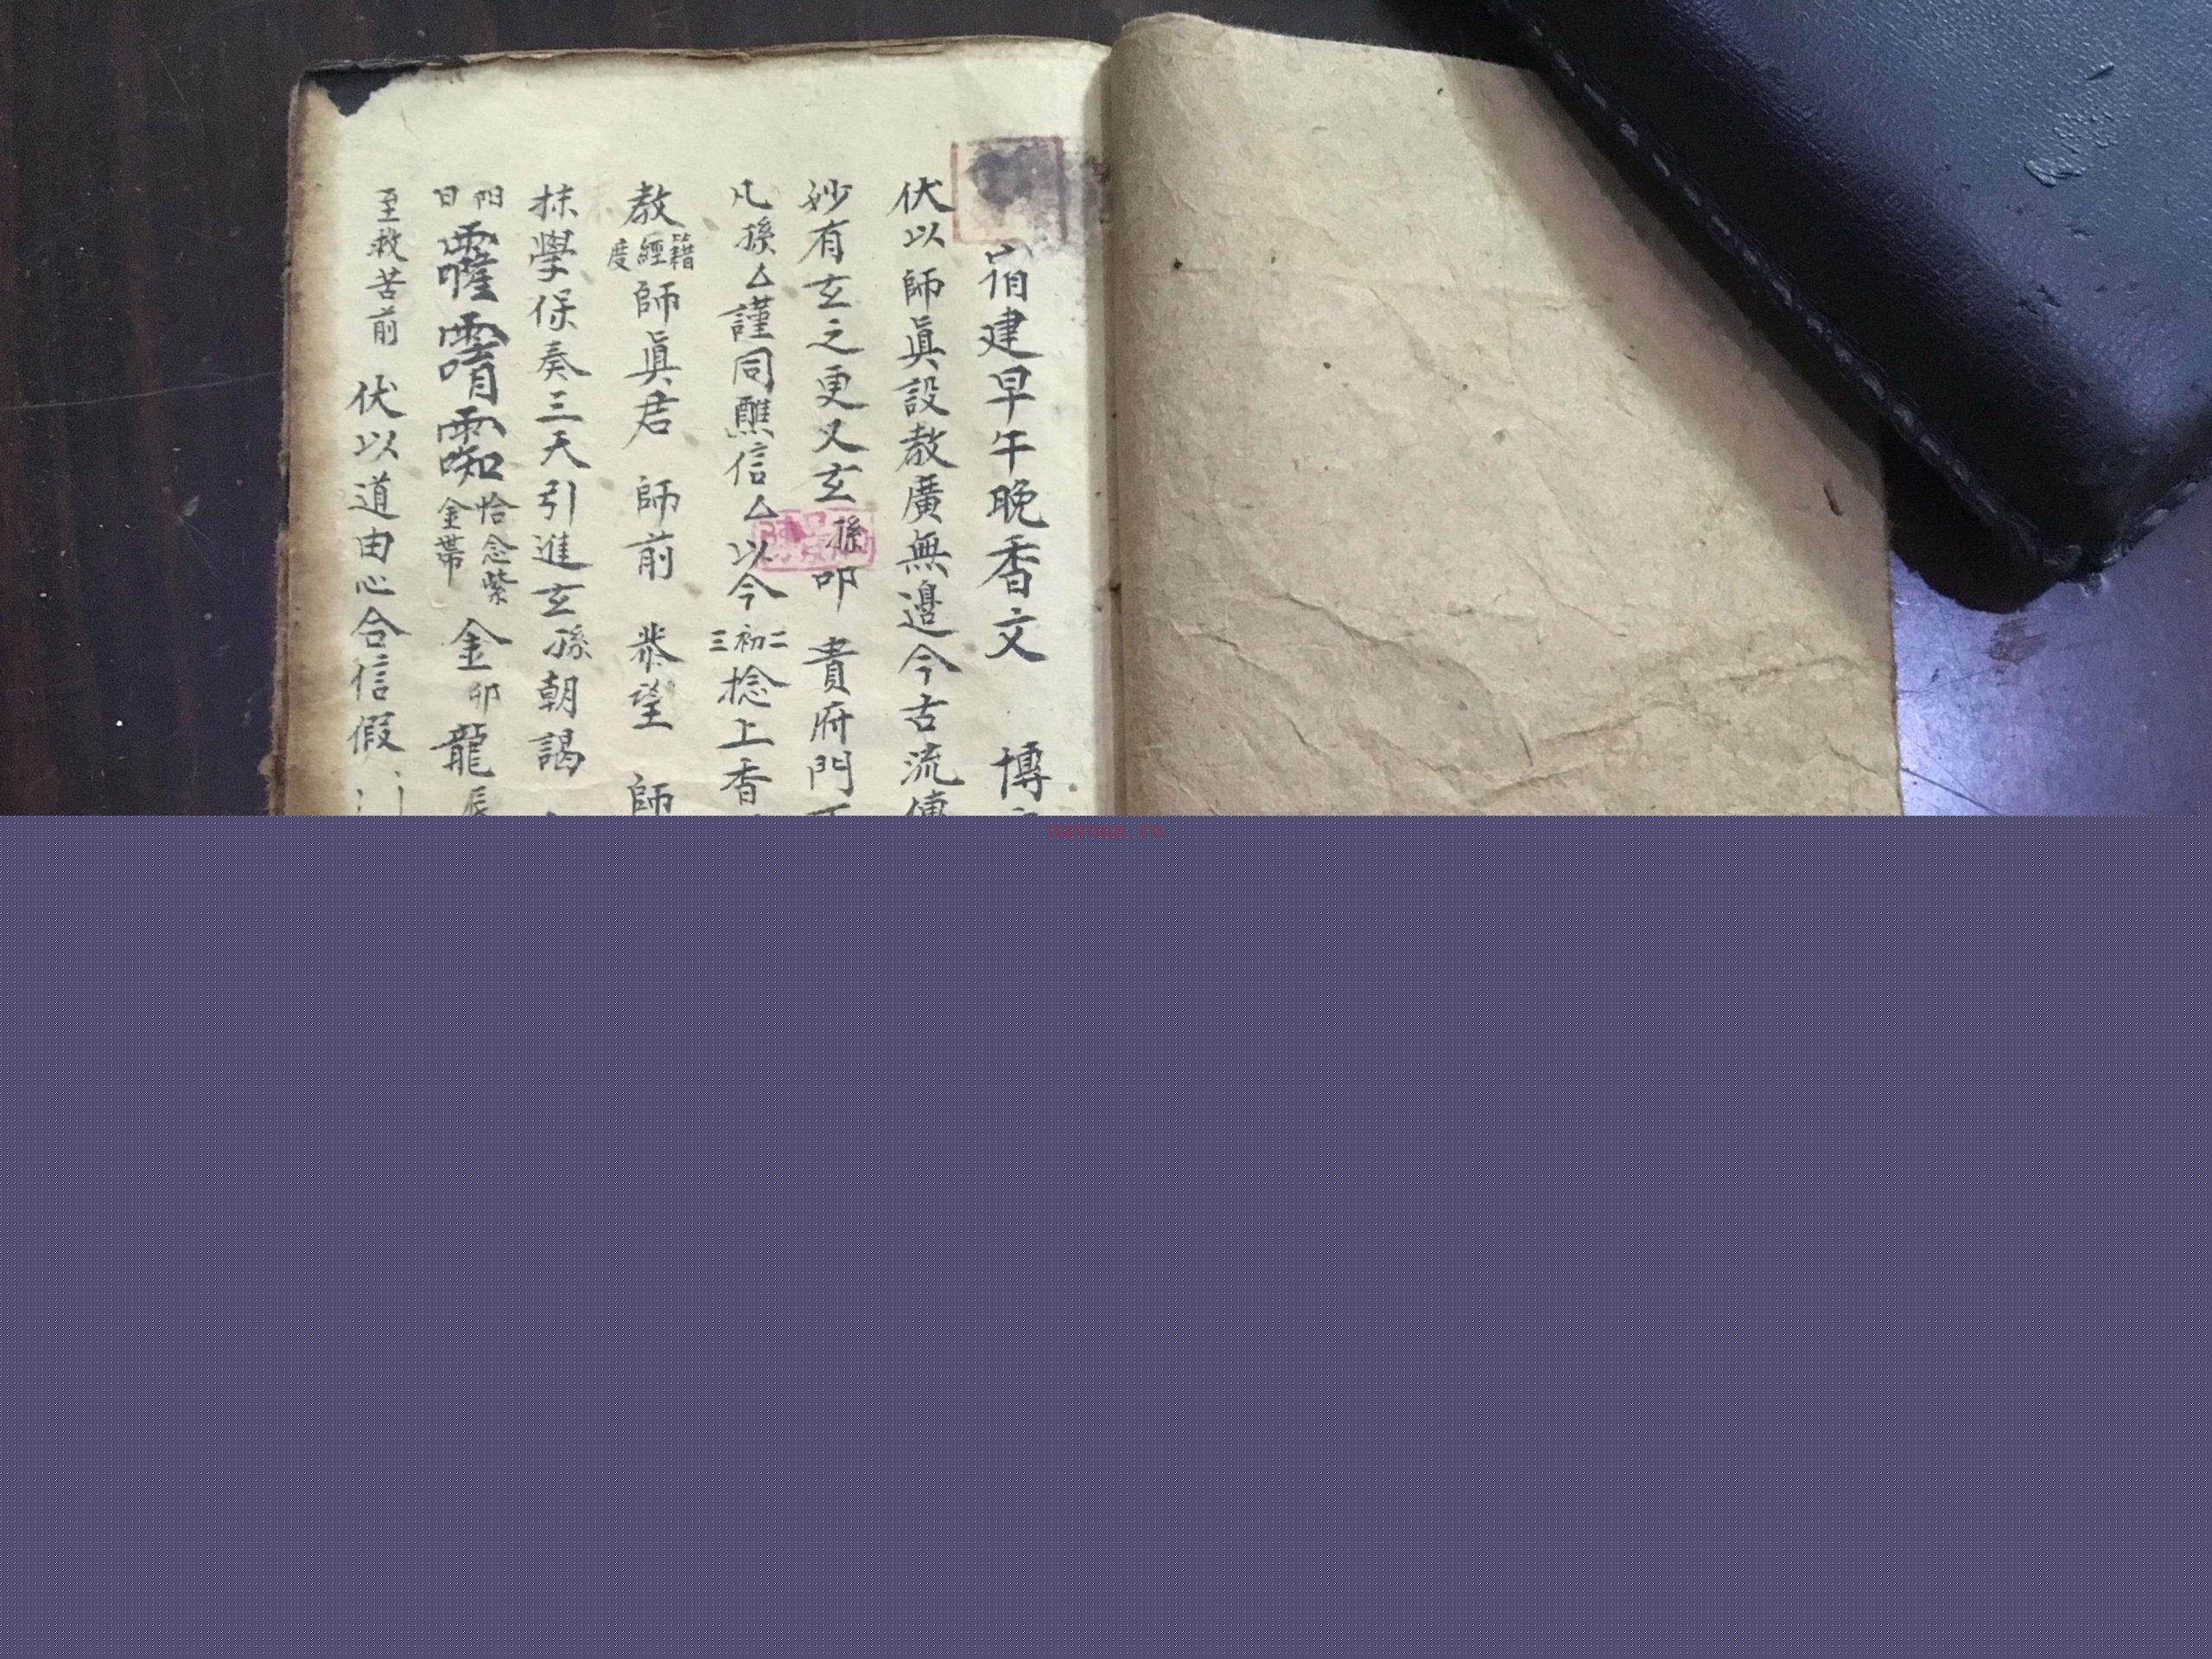 宿建早午晚香文 博
伏以 師真設教廣無邊今古流傳
妙有玄之更又玄 孫 叩 貴府門
凡孫△謹同醮信△以今 二初三 捻上香
教 籍經度 師真君 師前 恭望 師
抹學保奏三天引進玄孫朝謁
阳日 金 卯 龍 辰
恰念紫金帶
至救苦前 伏以道由心合信假